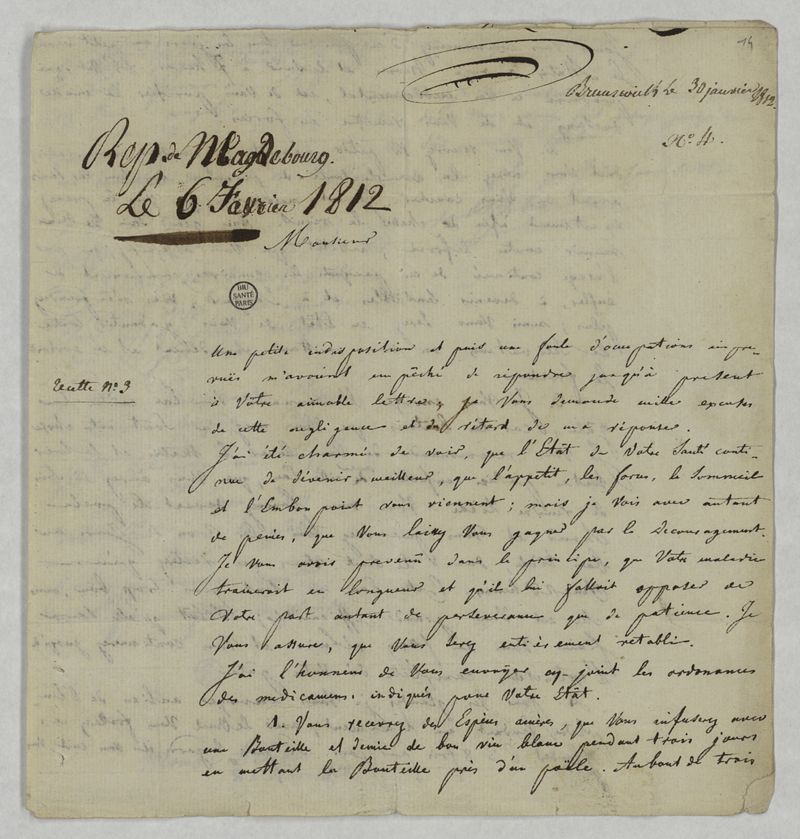 14
Brunswick le 30 janvier 1812.
No. 4.
Rep. de Magdebourg.
Le 6 Favrier 1812
Monsieur
BIU
SANTÉ
PARIS
Une petite indisposition et puis une foule d'occupations impré-
vuës m'avoient empêché de répondre jusqu'à present
recette No. 3
à Votre aimable lettre, je Vous demande mille excuses
de cette negligence et du rétard de ma réponse.
J'ai été charmé de voir, que l'Etat de Votre Santé conti-
nue de dévenir meilleur, que l'appetit, les forces, le Sommeil
et l'Embonpoint vous viennent; mais je Vois avec autant
de peines, que Vous laissez Vous gagner par le Decouragement.
Je Vous avois prevenû dans le principe, que Votre maladie
traineroit en longueur et qu'il lui falloit opposer de
Votre part autant de perseverance que de patience. Je
Vous assure, que Vous serez entièrement retabli.
J'ai l'honneur de Vous envoÿer cy-joint les ordonances
des medicamens indiqués pour Votre Etât.
1. Vous recevrez des Espèces amères, que Vous infuserez avec
une Bouteille et demie de bon vin blanc pendant trois jours
en mettant la Bouteille près d'un poële. Au bout de trois